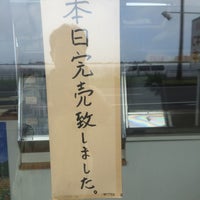 本日完売致しました。